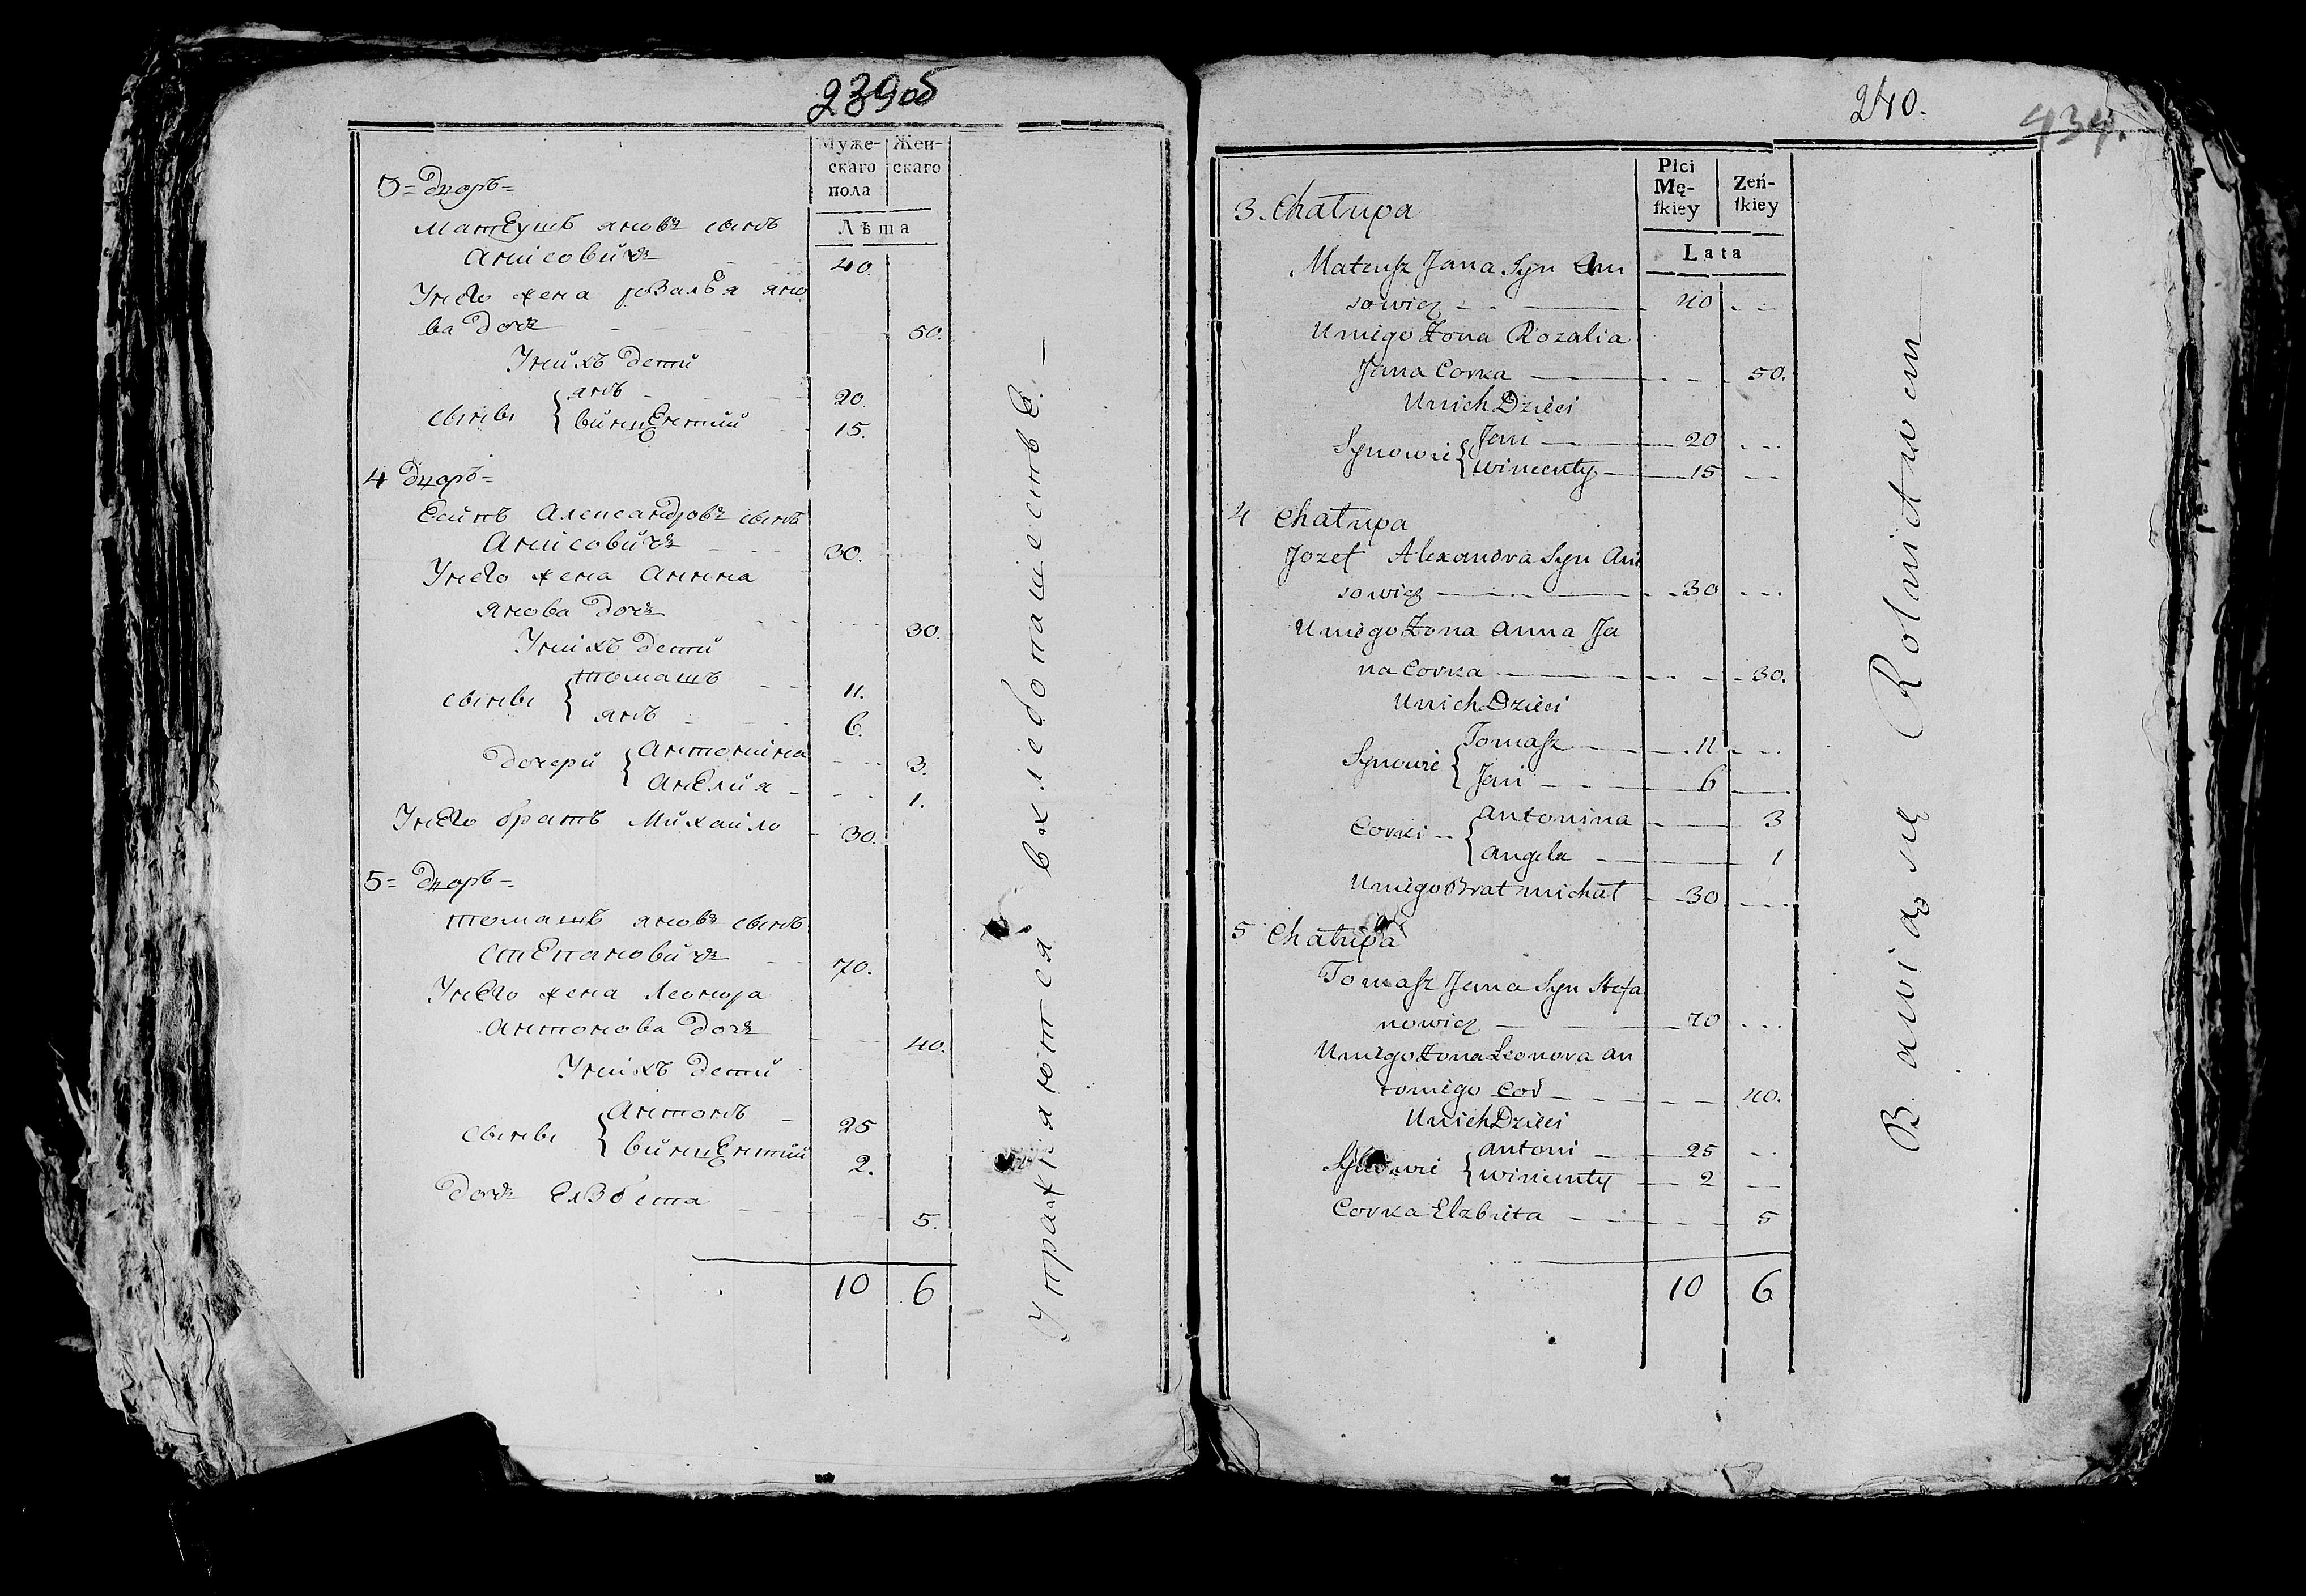 239 об
Муже- Жен-
скаго скаго
пола
Лѣта
3 = Дворъ =
Матеушъ яновъ сынъ
Анисовичъ 40.
Унего жена розалѣя яно
ва дочь 50.
Унихъ дети
сыны { янъ 20.
винцентий 15.
4 Дворъ =
Есипъ Александровъ сынъ
Анисовичъ 30.
Унего жена Анна
янова дочь 30.
Унихъ дети
сыны { томашъ 11.
янъ 6.
дочери { Антонина 3.
Анелия 1.
Унего братъ Михайло 30.
5 = Дворъ =
томашъ яновъ сынъ
степановичъ 70.
Унего жена Леонора
Антонова дочь 40.
Унихъ дети
сыны { Антонъ 25
винцентий 2.
дочь Елзбета 5.
10 6
Упражняются вхлебопашестве. —
240.
Płci
Mę- Zeń-
ſkiey ſkiey
Lata
3. Chałupa
Mateuſz Jana Syn Ani
sowicz 40
Uniego Żona Rozalia
Jana Corka 50.
Unich Dzieci
Synowie { Jan 20
Wincenty 15
4 Chałupa
Jozef Alexandra Syn Ani
sowicz 30
Uniego Żona Anna Ja
na Corka 30.
Unich Dzieci
Synowie { Tomaſz 11
Jan 6
Corki { Antonina 3
Angela 1
Uniego Brat Michał 30
5 Chałupa
Tomaſz Jana Syn Stefa
nowicz 70
Uniego Żona Leonora An
toniego Cor 40.
Unich Dzieci
Synowie { Antoni 25
Wincenty 2
Corka Elzbieta 5
10 6
Bawią się Rolnictwem